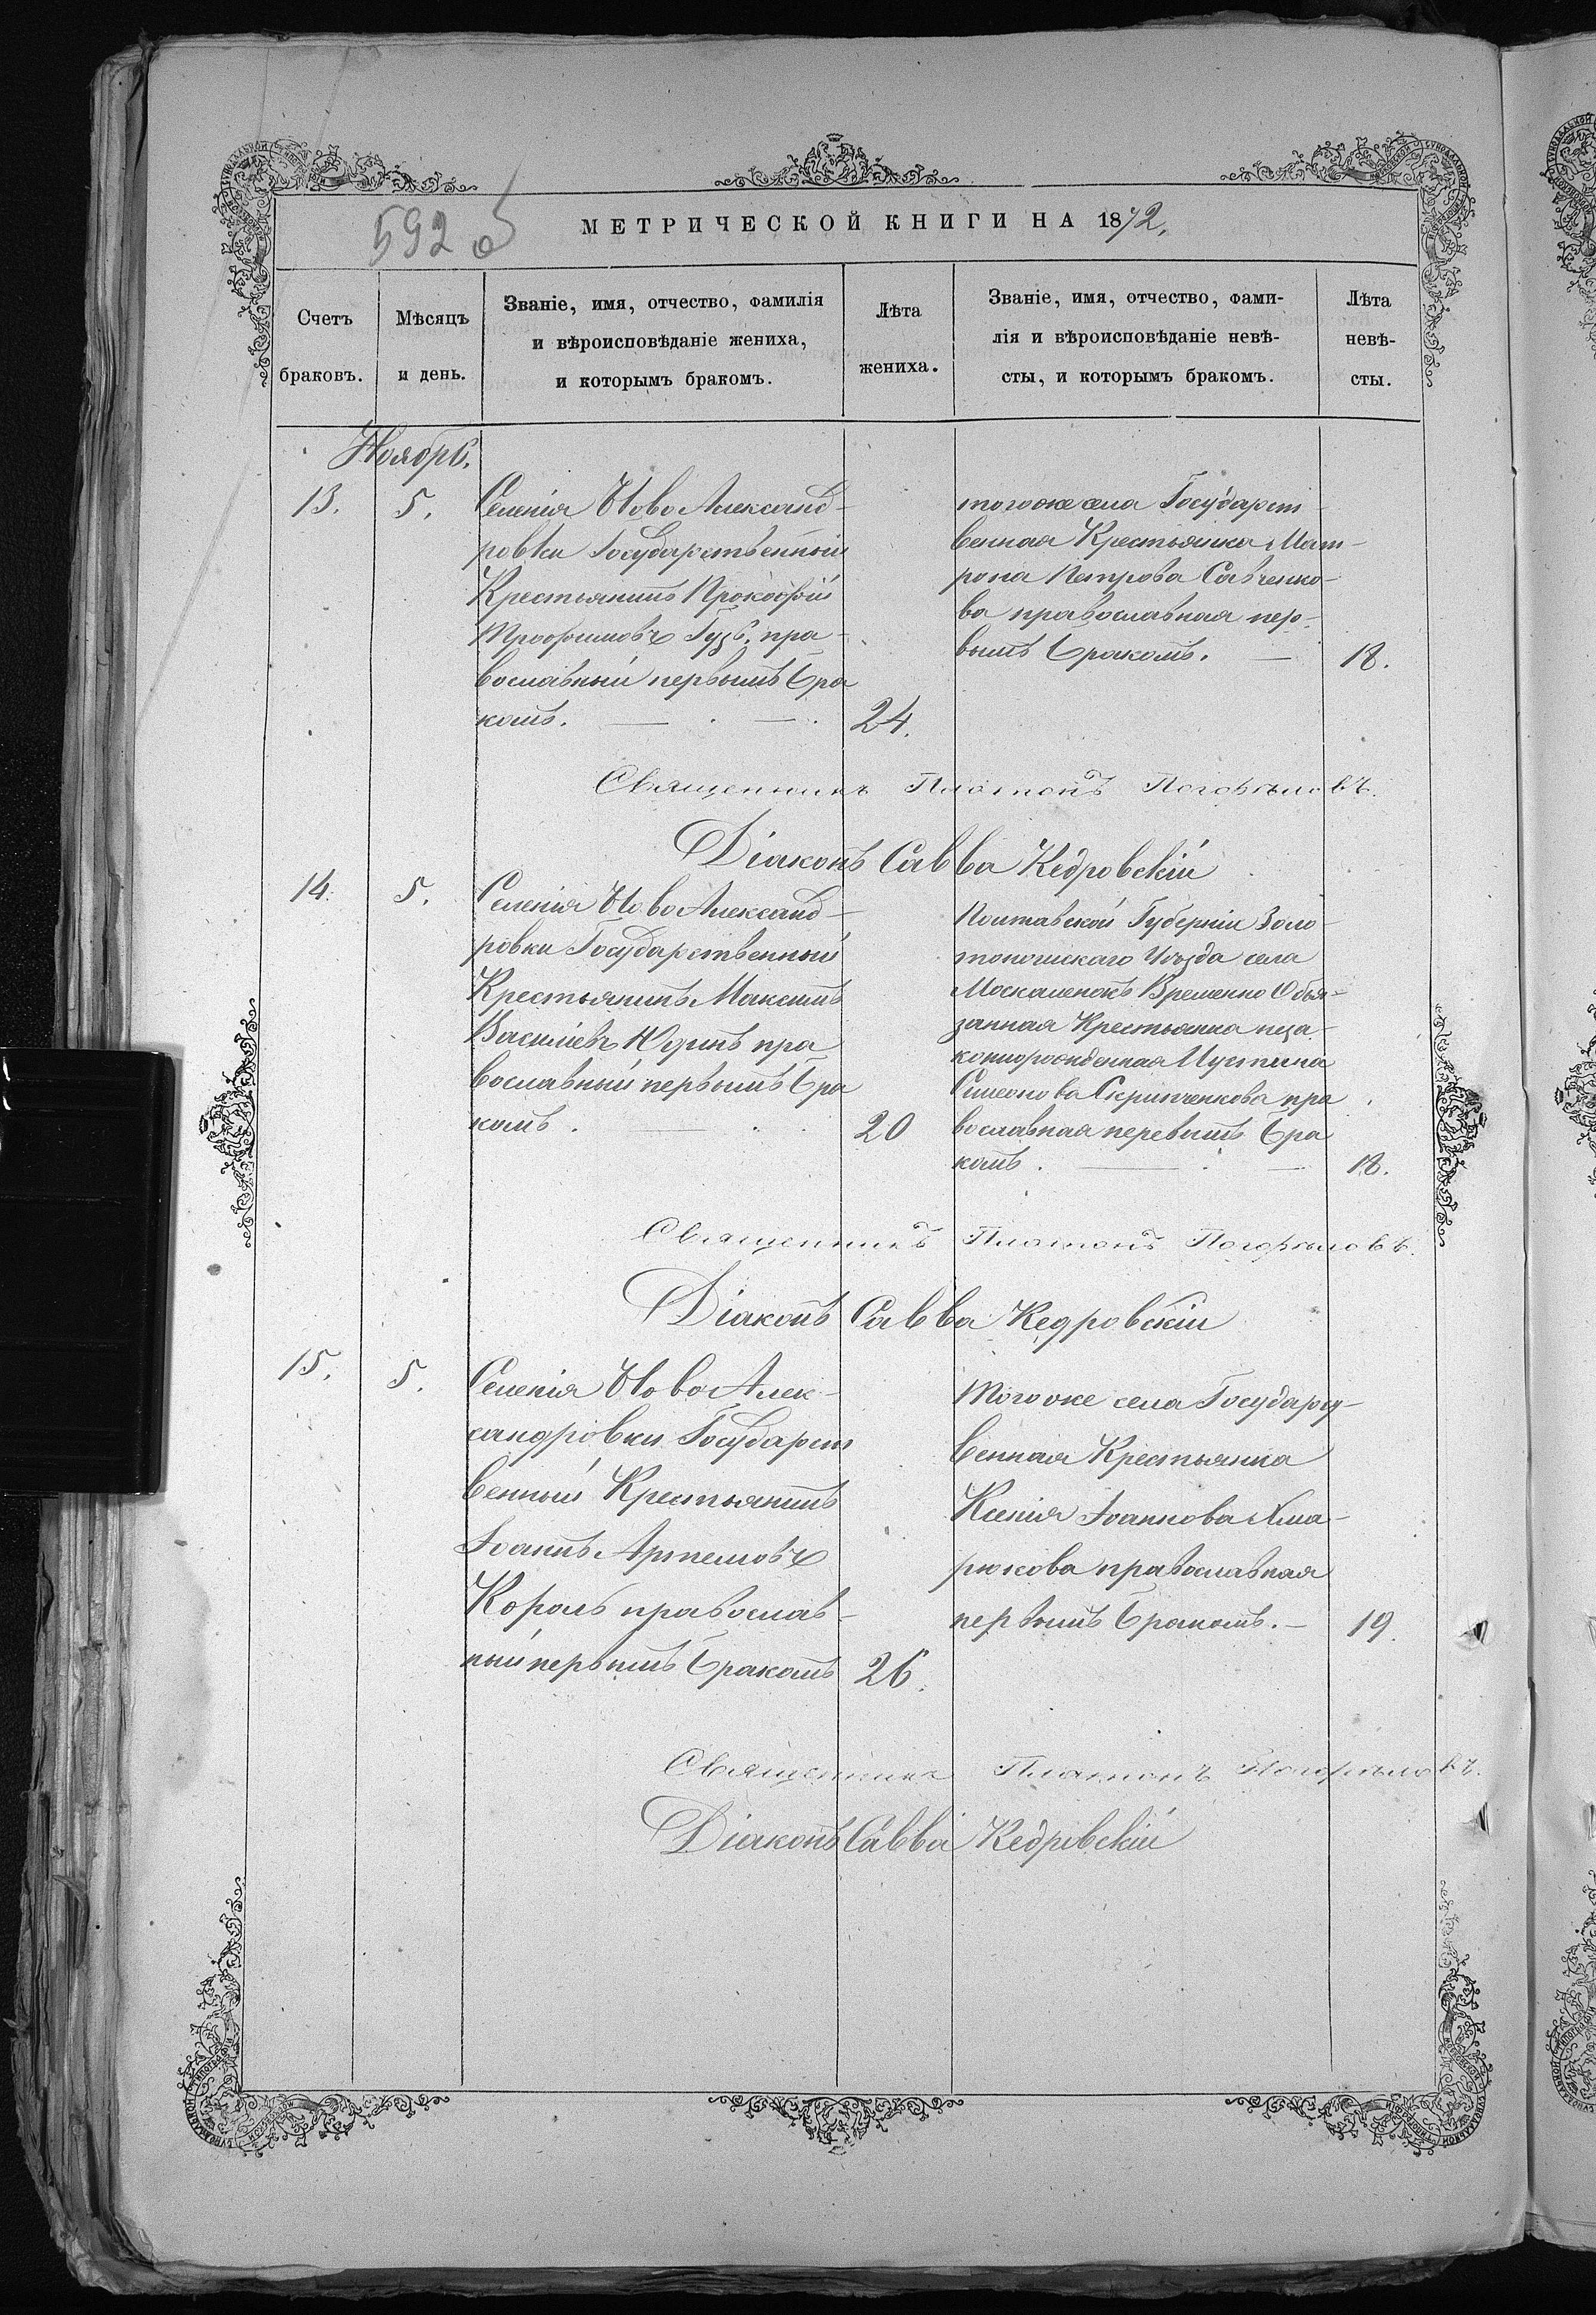 592 об
МЕТРИЧЕСКОЙ КНИГИ НА 1872.
Счетъ браковъ.
Мѣсяцъ и день.
Званіе, имя, отчество, фамилія
и вѣроисповѣданіе жениха,
и которымъ бракомъ.
Лѣта
жениха.
Званіе, имя, отчество, фами-
лія и вѣроисповѣданіе невѣ-
сты, и которымъ бракомъ.
Лѣта
невѣ-
сты.
Ноябрь.
13.
5.
Селенія Ново Александ-
ровки Государственный
Крестьянинъ Прокофій
Трофимовъ Гузь, пра-
вославный первымъ бра
комъ.
24.
тогоже села Государст-
венная Крестьянка Мат-
рона Петрова Савченко-
ва православная пер-
вымъ бракомъ.
18.
Священникъ Платонъ Погорѣловъ.
Діаконъ Савва Кедровскій
14.
5.
Селенія Ново Александ-
ровки Государственный
Крестьянинъ Максимъ
Васильевъ Юринъ пра
вославный первымъ бра
комъ.
20
Полтавской Губерніи Золо-
тоношскаго Уѣзда села
Москаленокъ Временно Обя-
занная Крестьянка неза-
коннорожденная Иустина
Симеонова Скрипченкова пра
вославная первымъ бра
комъ.
18.
Священникъ Платонъ Погорѣловъ.
Діаконъ Савва Кедровскій
15.
5.
Селенія Ново Алек-
сандровки Государст
венный Крестьянинъ
Іоаннъ Артемовъ
Король православ-
ный первымъ бракомъ
26.
Того же села Государст-
венная Крестьянка
Ксенія Іоаннова
православная
первымъ бракомъ.
19.
Священникъ Платонъ Погорѣловъ.
Діаконъ Савва Кедровскій